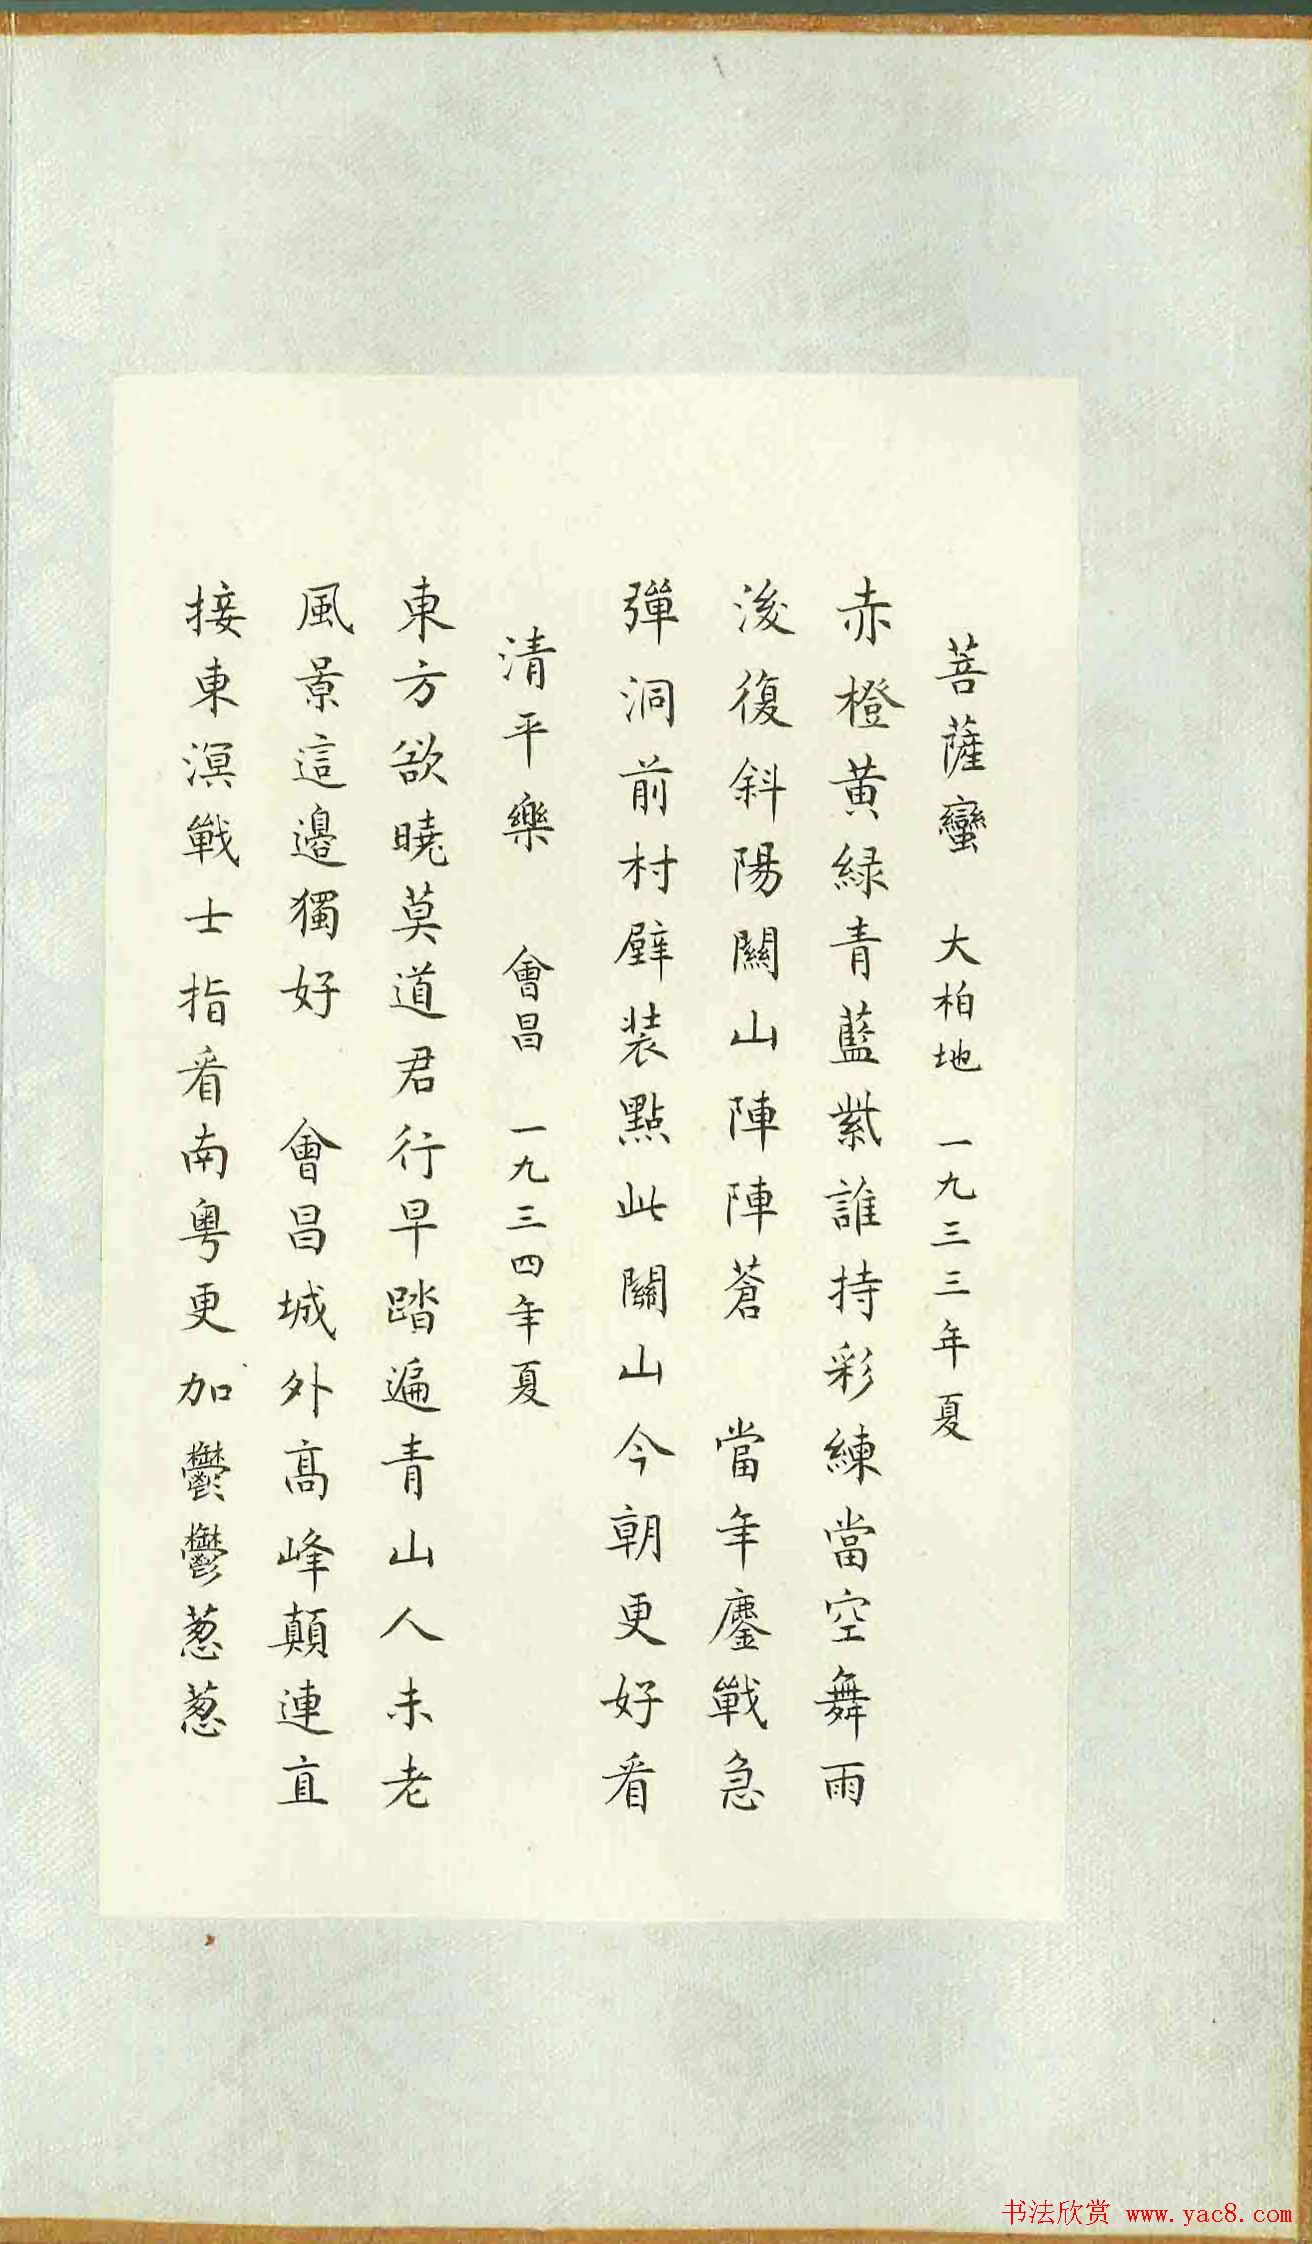 菩薩蠻　大柏地　一九三三年夏
赤橙黄緑青藍紫誰持彩練當空舞雨
後復斜陽關山陣陣蒼　當年鏖戰急
彈洞前村壁装點此關山今朝更好看
清平樂　會昌　一九三四年夏
東方欲曉莫道君行早踏遍青山人未老
風景這邊獨好　會昌城外高峰顛連直
接東溟戰士指看南粤更加鬱鬱葱葱
书法欣赏 www.yac8.com